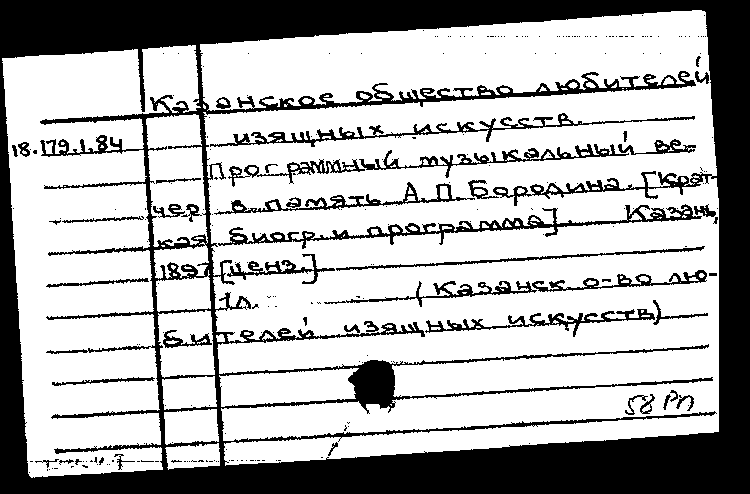 Казанское общество любителей
18.179.1.84 изящных искусств.
Программный музыкальный ве-
чер в память А.П. Бородина. [Крат-
кая биогр. и программа]. Казань,
1897 [ценз.]
1л. (Казанск о-во лю-
бителей изящных искусств)
58 РП